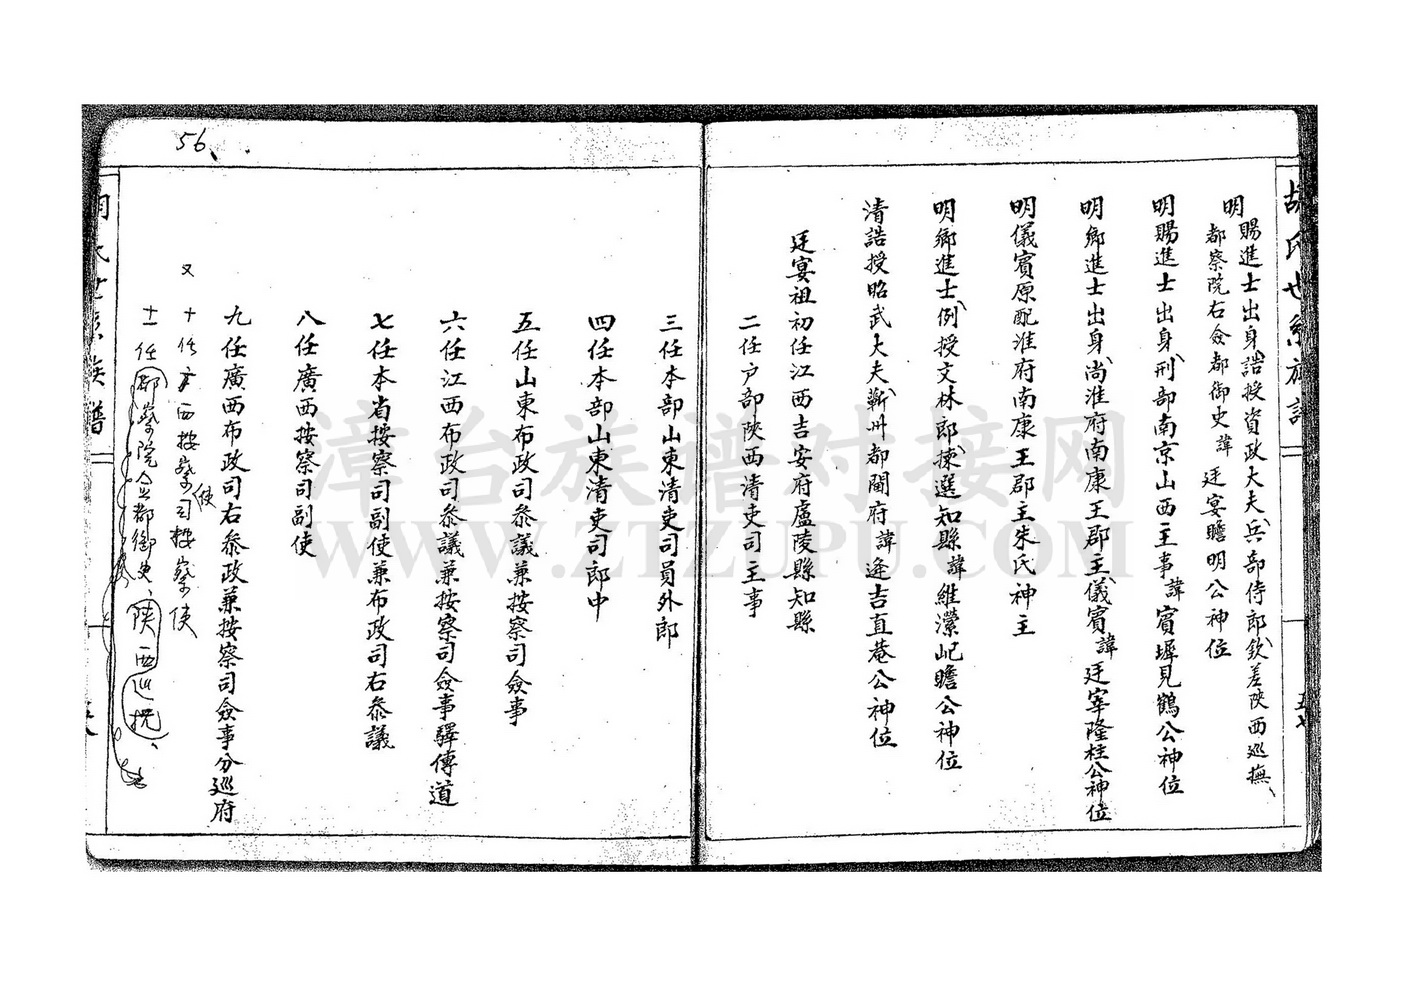 胡氏世系族譜
五七
明賜進士出身、誥授資政大夫、兵部侍郎、欽差陝西巡撫、
都察院右僉都御史諱廷宴瞻明公神位
明賜進士出身、刑部南京山西主事諱賓墀見鶴公神位
明鄉進士出身、尚淮府南康王郡主、儀賓諱廷宰隆柱公神位
明儀賓原配淮府南康王郡主朱氏神主
明鄉進士、例授文林郎、揀選知縣諱維瀠屺瞻公神位
清誥授昭武大夫、蘄州都閫府諱逢吉直菴公神位
廷宴祖初任江西吉安府盧陵縣知縣
二任户部陝西清吏司主事
三任本部山東清吏司員外郎
四任本部山東清吏司郎中
五任山東布政司叅議兼按察司僉事
六任江西布政司叅議兼按察司僉事驛傳道
七任本省按察司副使兼布政司右叅議
八任廣西按察司副使
九任廣西布政司右叅政兼按察司僉事分巡府
又十任广西按察司按察使
使
十一任都察院佥都御史、陕西巡抚、
56、
胡氏世系族譜
五八
漳台族谱对接网
WWW.ZTZUPU.COM